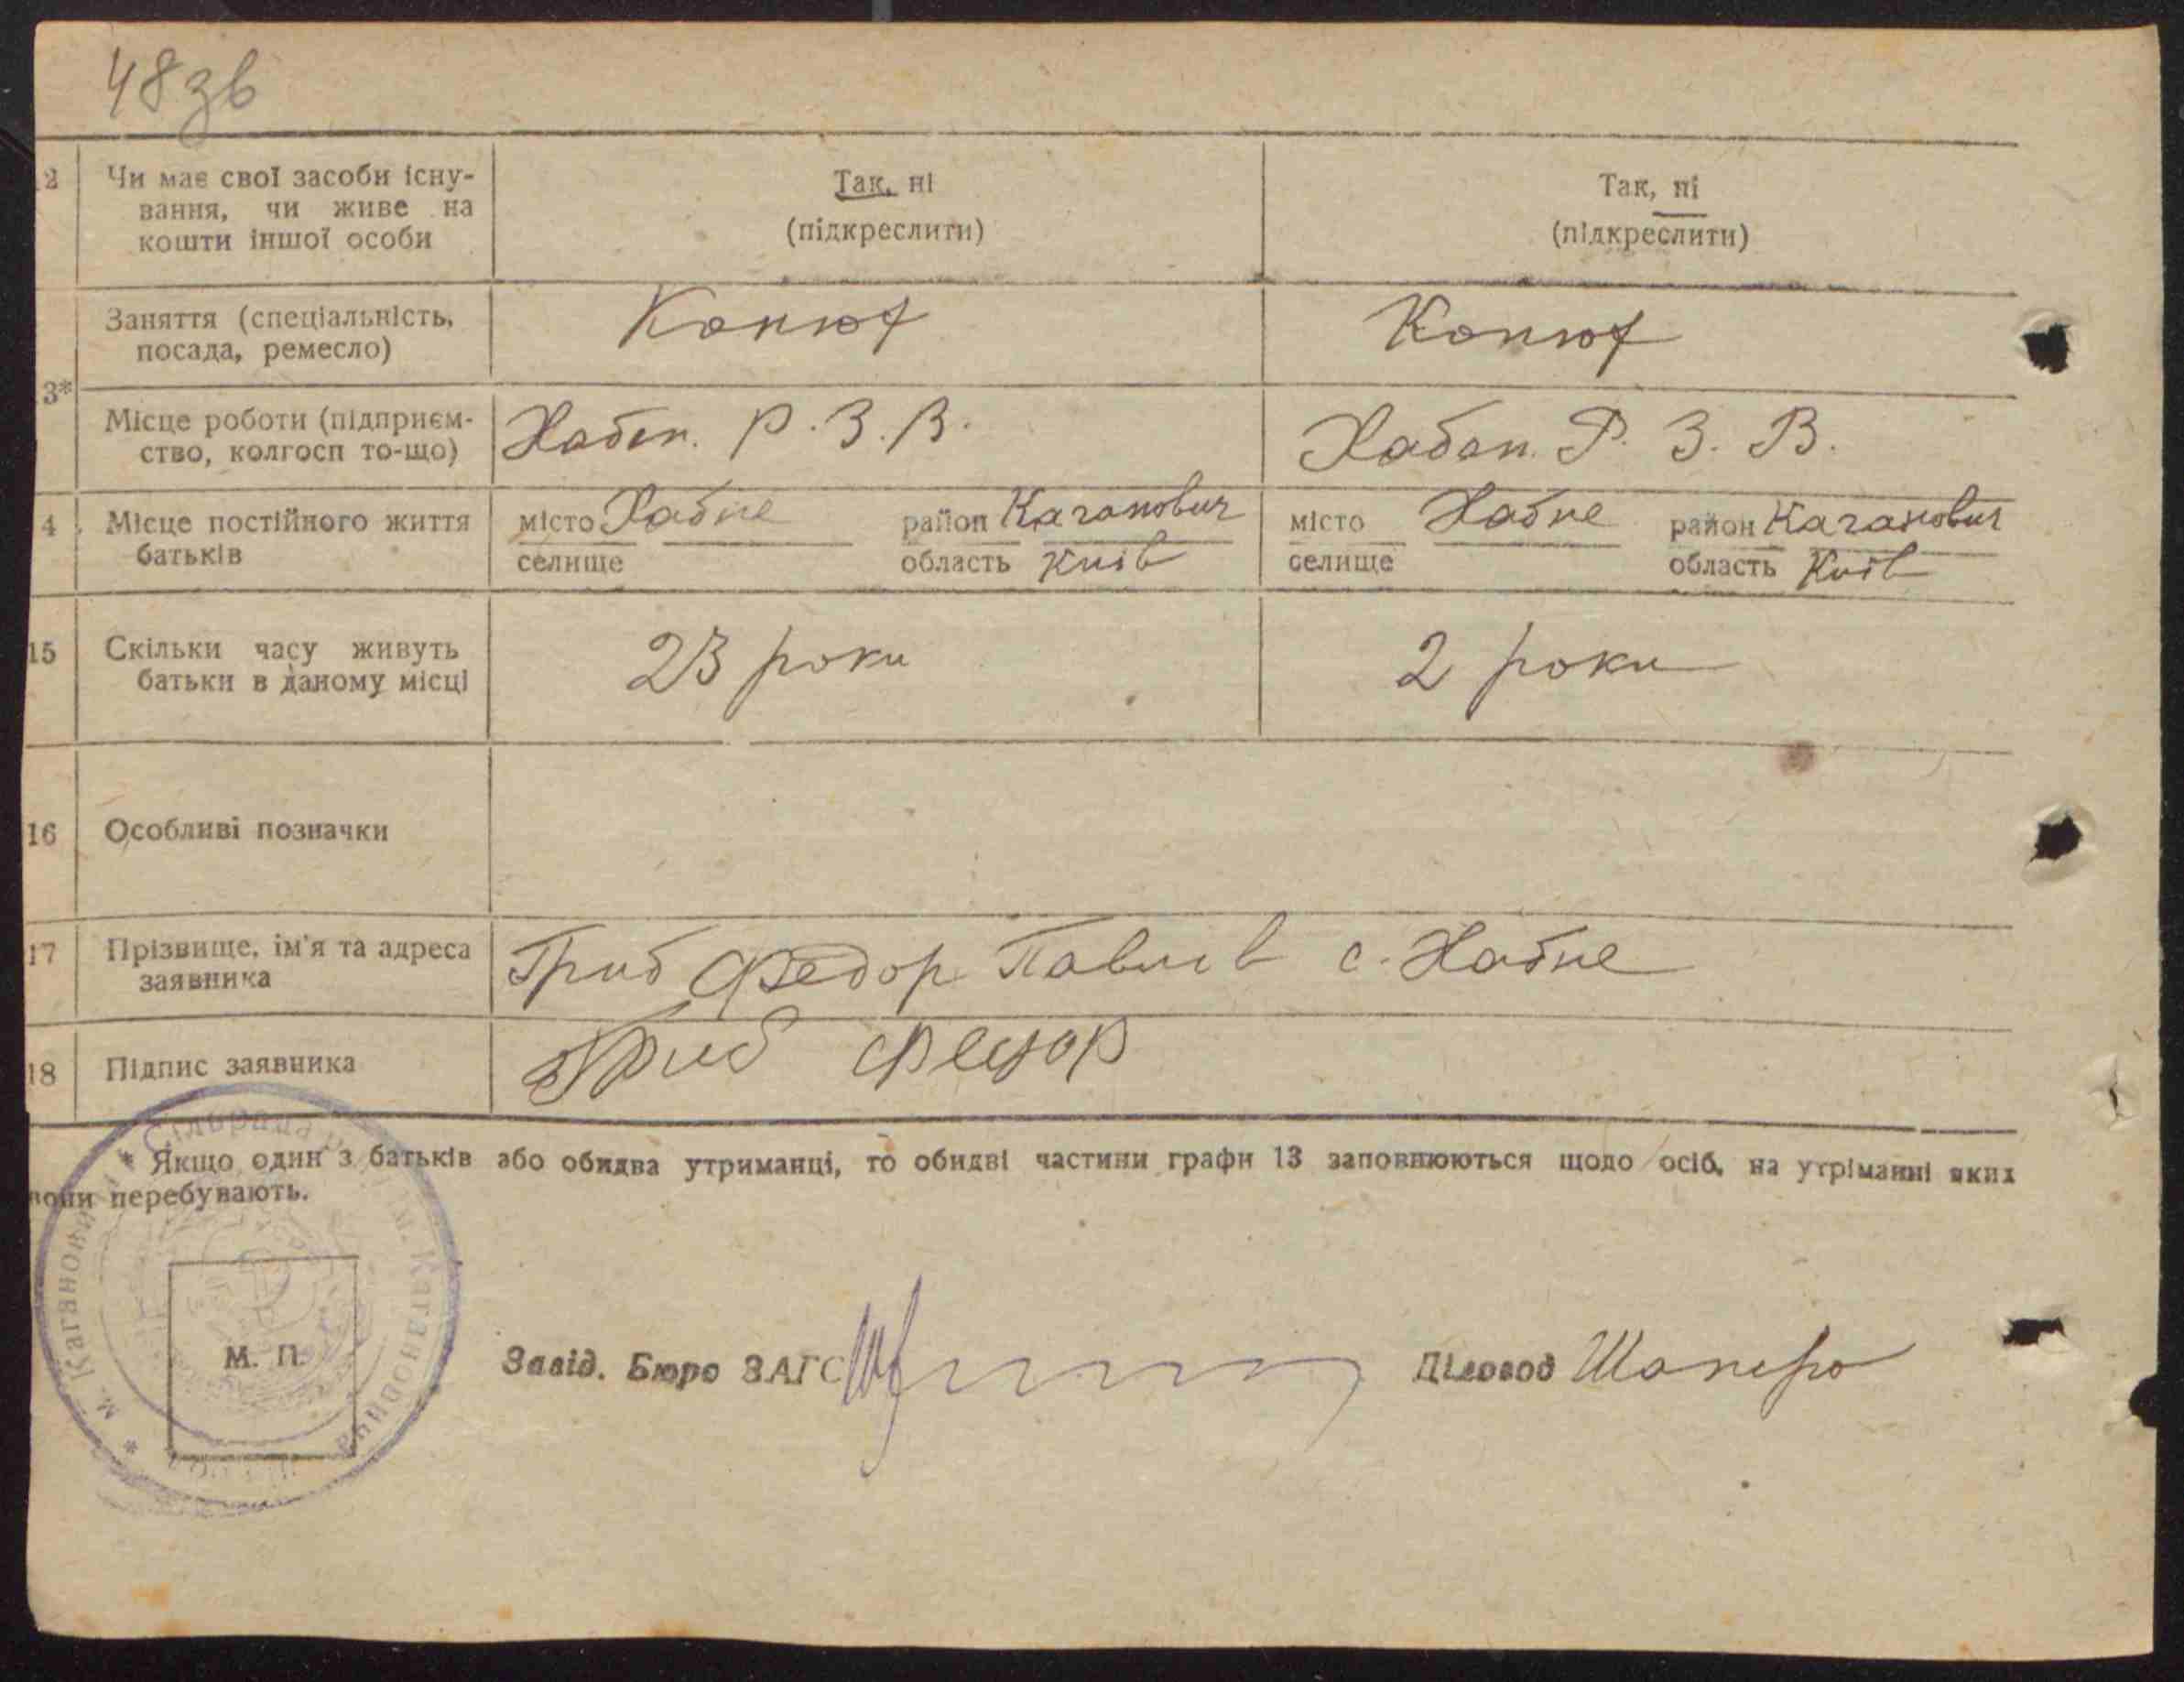 48зв
2 Чи має свої засоби існу-
вання, чи живе на
кошти іншої особи
Так, ні
(підкреслити)
Так, ні
(підкреслити)
3*
Заняття (спеціальність,
посада, ремесло)
Конюх
Конюх
Місце роботи (підприєм-
ство, колгосп то-що)
Хабен. Р. З. В.
Хабен. Р. З. В.
4 Місце постійного життя
батьків
місто Хабне район Каганович
селище область Київ
місто Хабне район Каганович
селище область Київ
15 Скільки часу живуть
батьки в даному місці
23 роки
2 роки
16 Особливі позначки
17 Прізвище, ім'я та адреса
заявника
Гриб Федор Павлів с. Хабне
18 Підпис заявника
Гриб Федор
* Якщо один з батьків або обидва утриманці, то обидві частини графи 13 заповнюються щодо осіб, на утріманні яких
вони перебувають.
Сільрада
м. Каганович
М. П.
Завід. Бюро ЗАГС
Діловод Шапиро